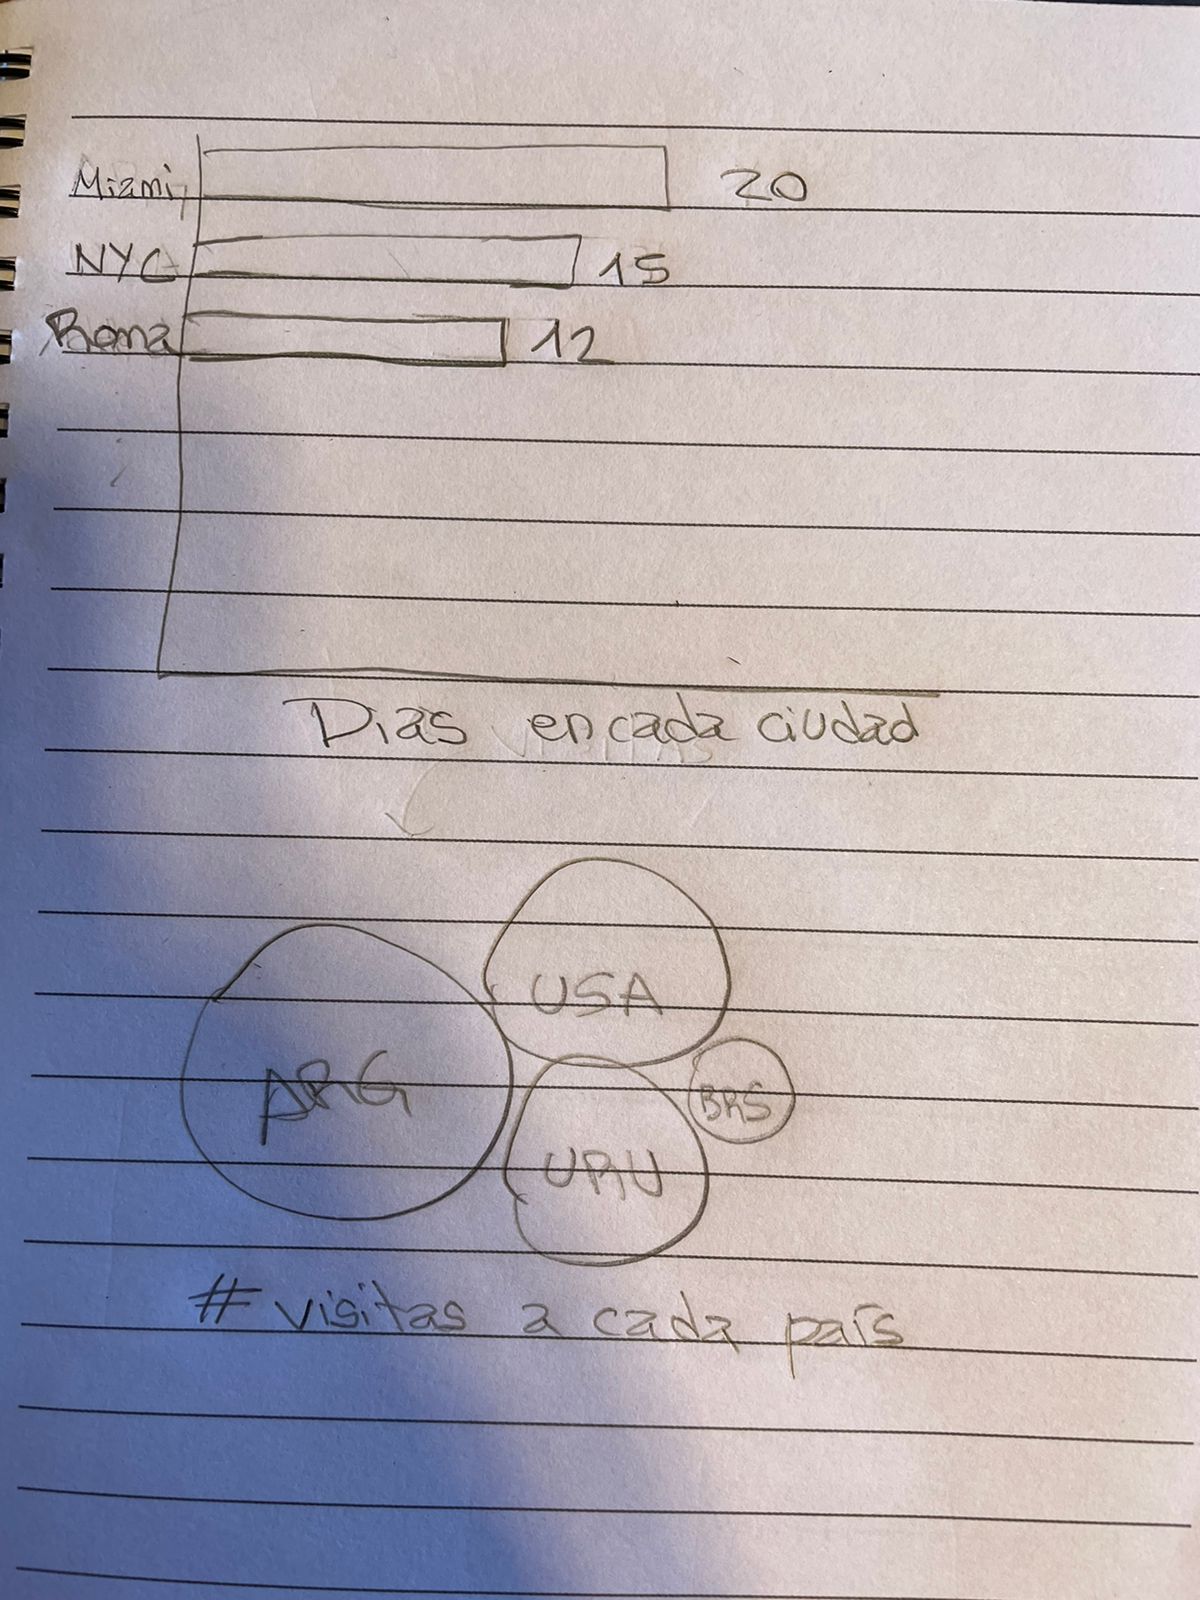 Miami 20
NYC 15
Roma 12
Dias en cada ciudad
USA
ARG
BRS
URU
# visitas a cada país